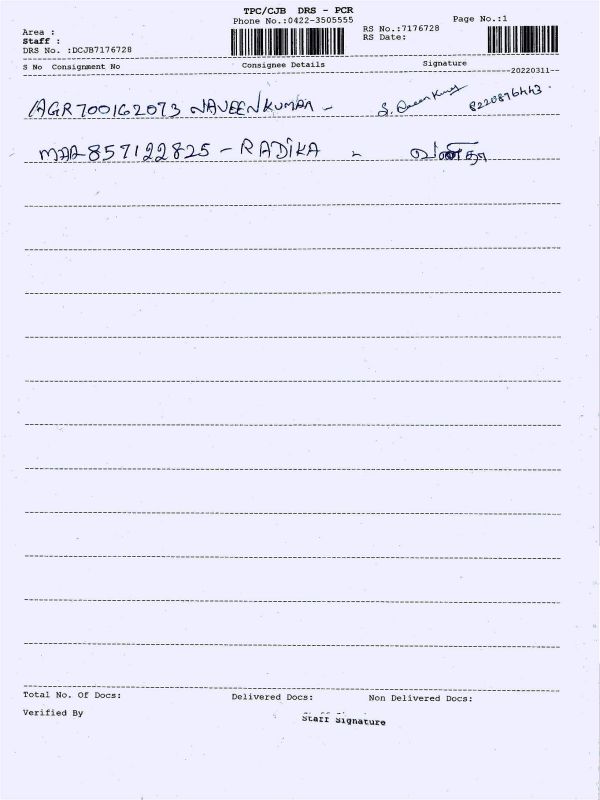 TPC/CJB DRS - PCR
Phone No.:0422-3505555
Page No.:1
Area :
RS No.:7176728
Staff :
RS Date:
DRS No. :DCJB7176728
S No Consignment No Consignee Details Signature
--20220311--
AGR700162073 NAVEENKUMAR -
MAA857122825 - RADIKA -
Total No. Of Docs: Delivered Docs: Non Delivered Docs:
Verified By Staff Signature